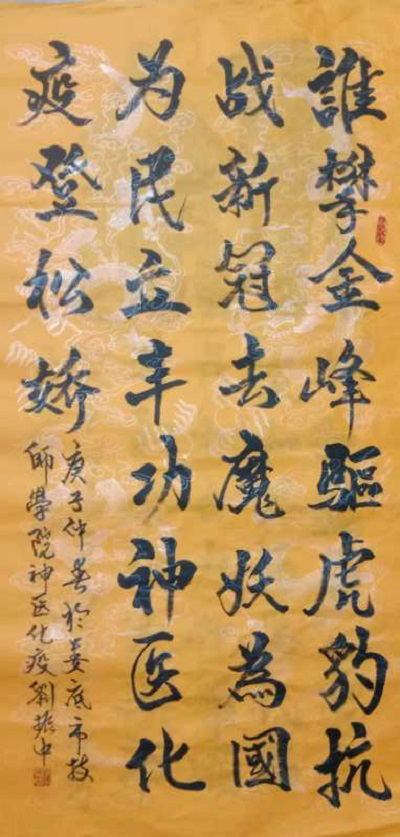 誰攀金峰驅虎豹抗
战新冠去魔妖為國
为民立丰功神医化
疫登松娇
庚子仲春於娄底市技
師學院神医化疫劉振中